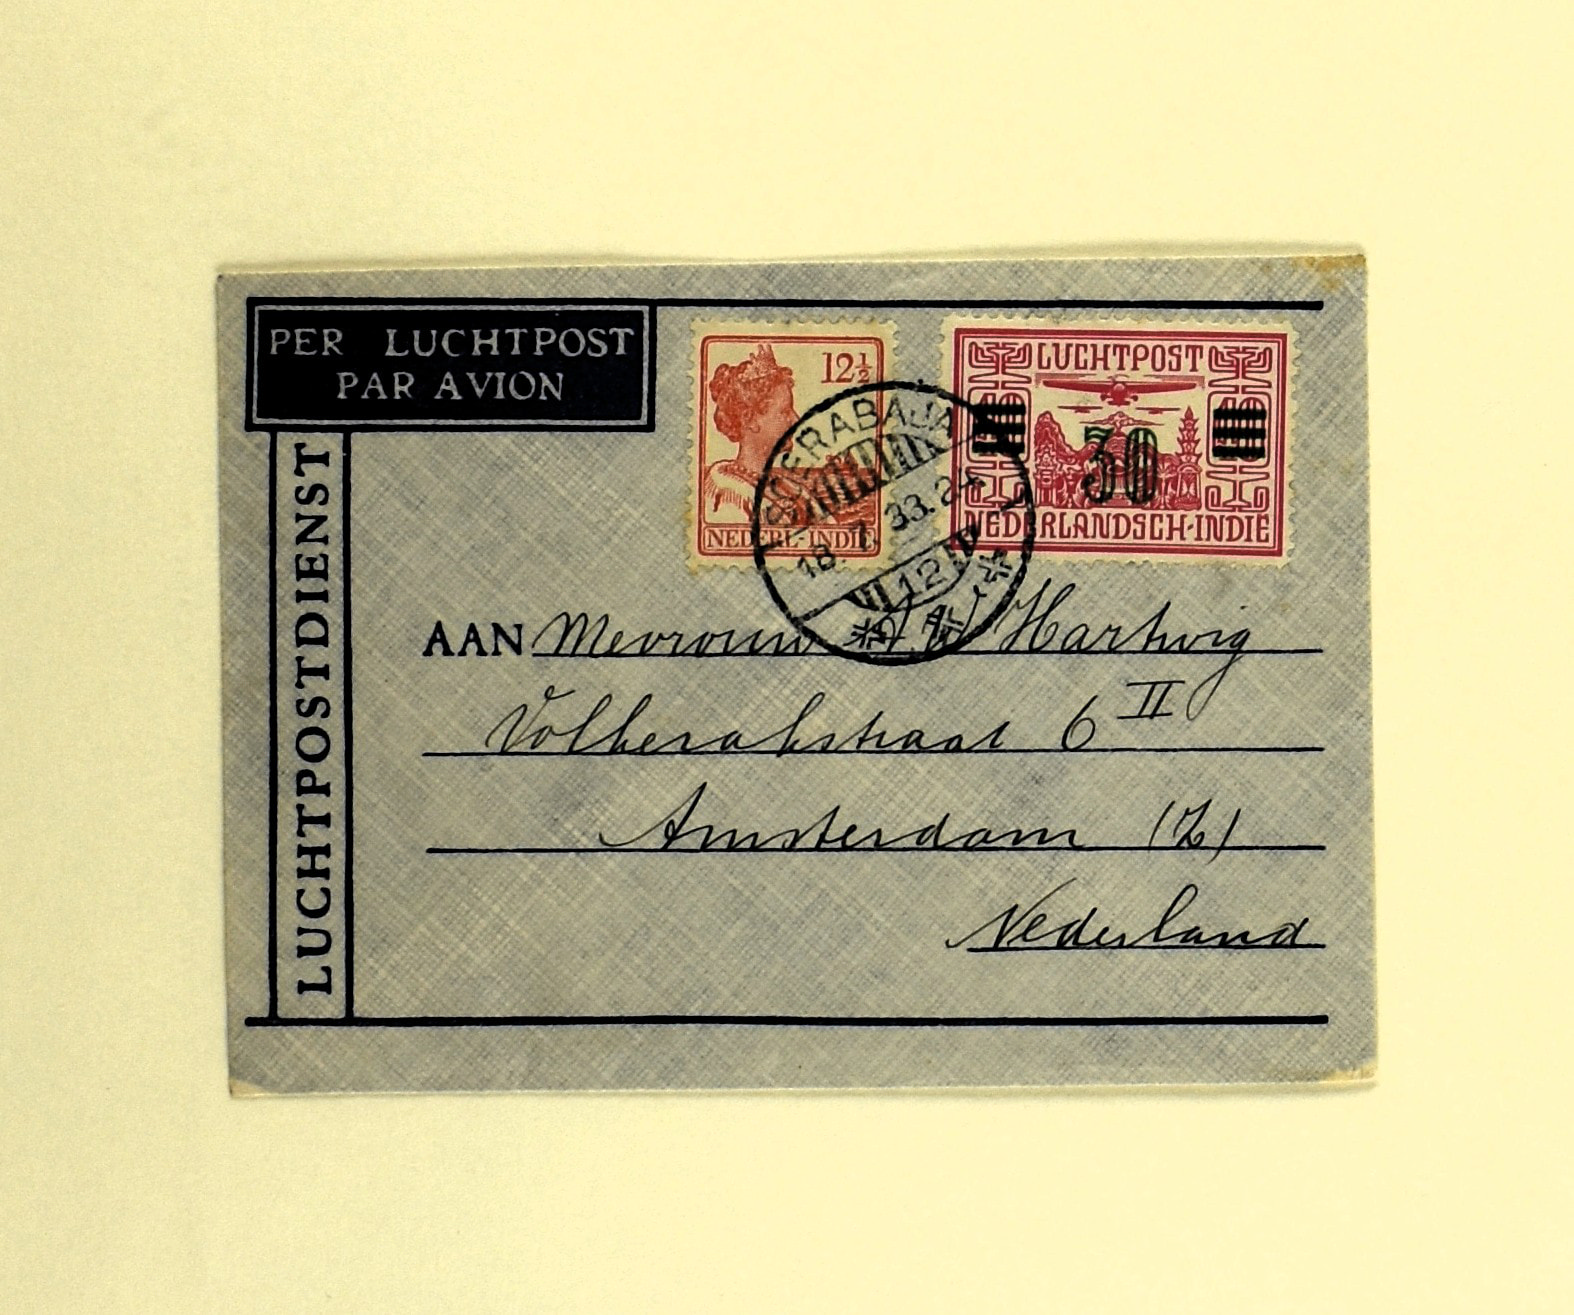 PER LUCHTPOST
PAR AVION
LUCHTPOSTDIENST
12½
NEDERL-INDIE
LUCHTPOST
30
NEDERLANDSCH-INDIE
SOERABAJA
18.7.33.24
VI 12 FD
AAN Mevrouw W Hartwig
Volkerakstraat 6 II
Amsterdam (Z)
Nederland